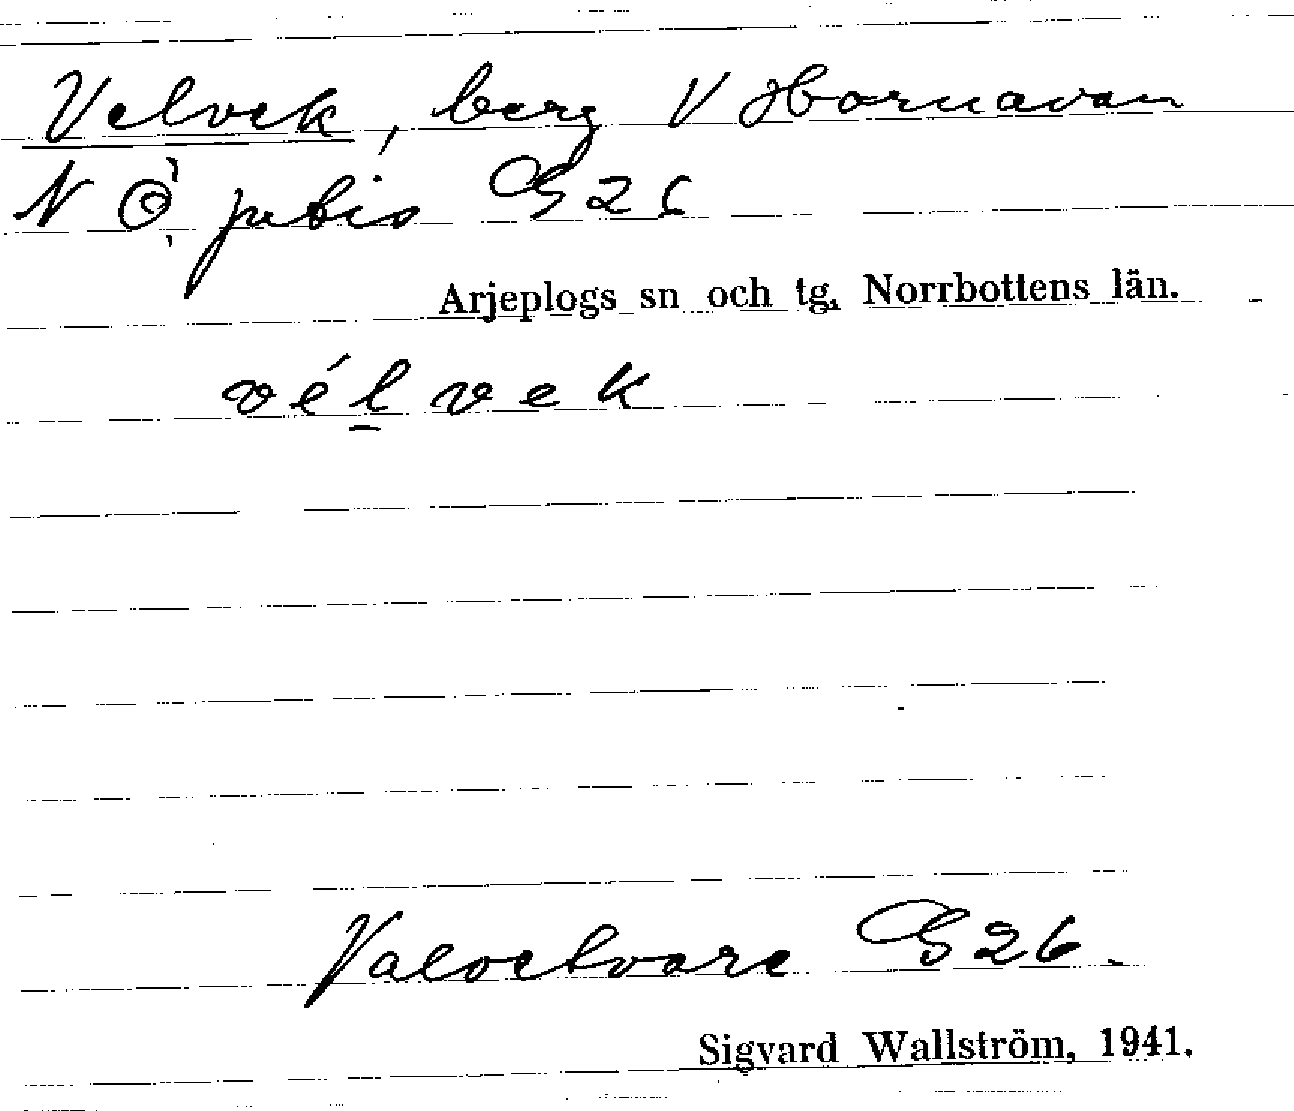 Velvek, berg V Hornavan
N Ö jutis G 26
Arjeplogs sn och tg, Norrbottens län.
vélvek
Valvetvare G 26.
Sigvard Wallström, 1941.